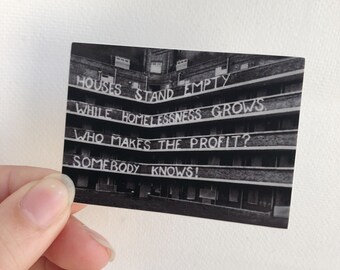 HOUSES STAND EMPTY
WHILE HOMELESSNESS GROWS
WHO MAKES THE PROFIT?
SOMEBODY KNOWS!